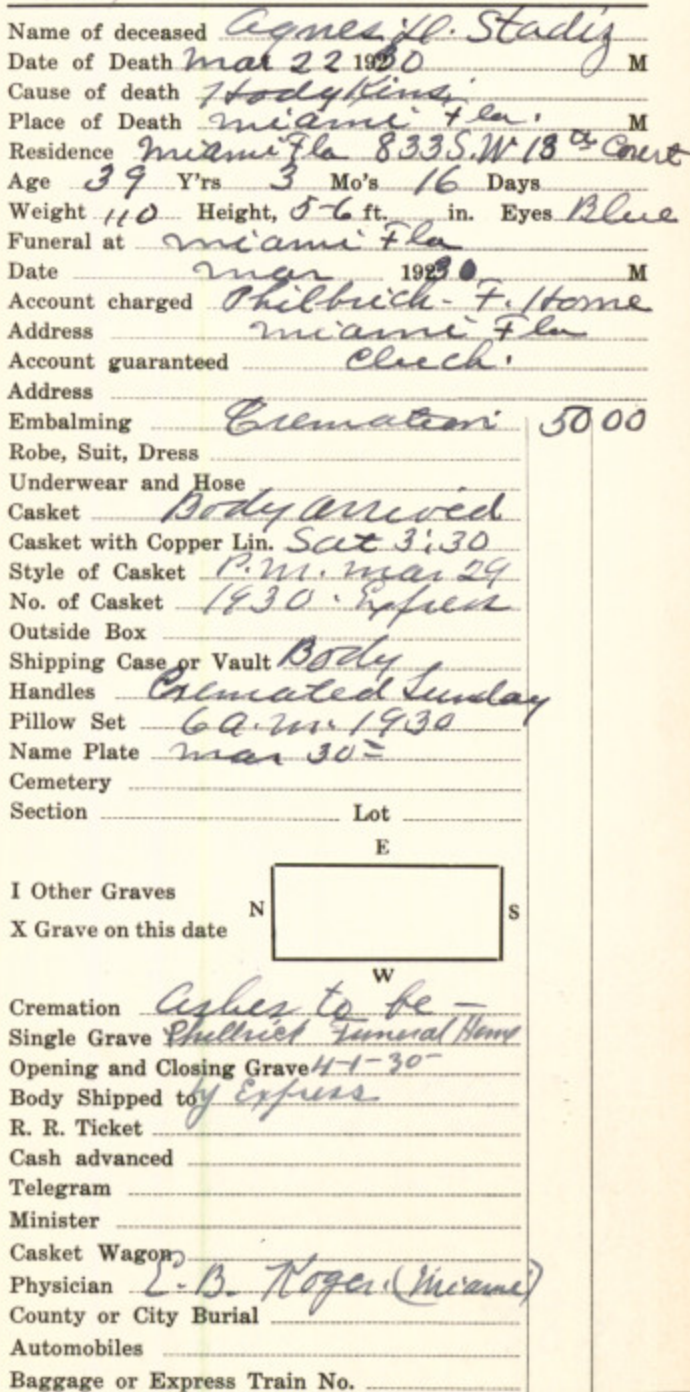 Name of deceased Agnes H. Stadig
Date of Death Mar 22 1930 M
Cause of death Hodgkins
Place of Death Miami Fla. M
Residence Miami Fla 833 S.W 13th Court
Age 39 Y'rs 3 Mo's 16 Days
Weight 110 Height, 5-6 ft. in. Eyes Blue
Funeral at Miami Fla
Date Mar 1930 M
Account charged Philbrick - F. Home
Address Miami Fla
Account guaranteed Check.
Address
Embalming Cremation 50 00
Robe, Suit, Dress
Underwear and Hose
Casket Body arrived
Casket with Copper Lin. Sat 3:30
Style of Casket P.M. Mar 29
No. of Casket 1930. Express
Outside Box
Shipping Case or Vault Body
Handles Cremated Sunday
Pillow Set 6 a.m. 1930
Name Plate Mar 30 =
Cemetery
Section Lot
E
I Other Graves
N S
X Grave on this date
W
Cremation Ashes to be -
Single Grave Philbrick Funeral Home
Opening and Closing Grave 4-1-30-
Body Shipped to by Express
R. R. Ticket
Cash advanced
Telegram
Minister
Casket Wagon
Physician E. B. Koger. (Miami)
County or City Burial
Automobiles
Baggage or Express Train No.